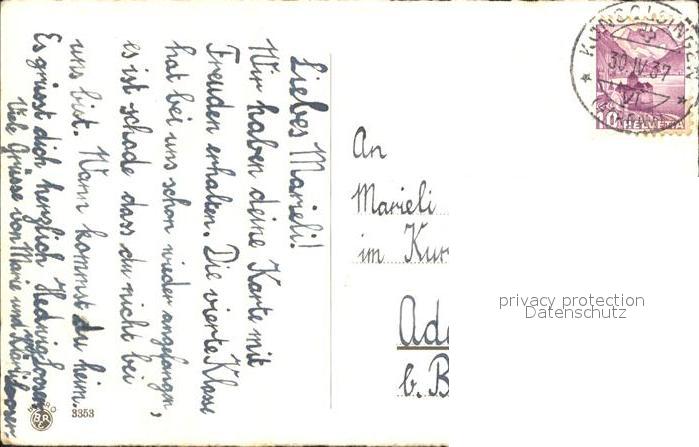 Liebes Marieli!
Wir haben deine Karte mit
Freuden erhalten. Die vierte Klasse
hat bei uns schon wieder angefangen,
es ist schade dass du nicht bei
uns bist. Wann kommst du heim.
Es grüsst dich herzlich Hedwig
Viele Grüsse von Marie und
An
Marieli
im Kur
Ade
b. B
KONOLFINGEN
30.IV.37
VI
10 HELVETIA
privacy protection
Datenschutz
3353